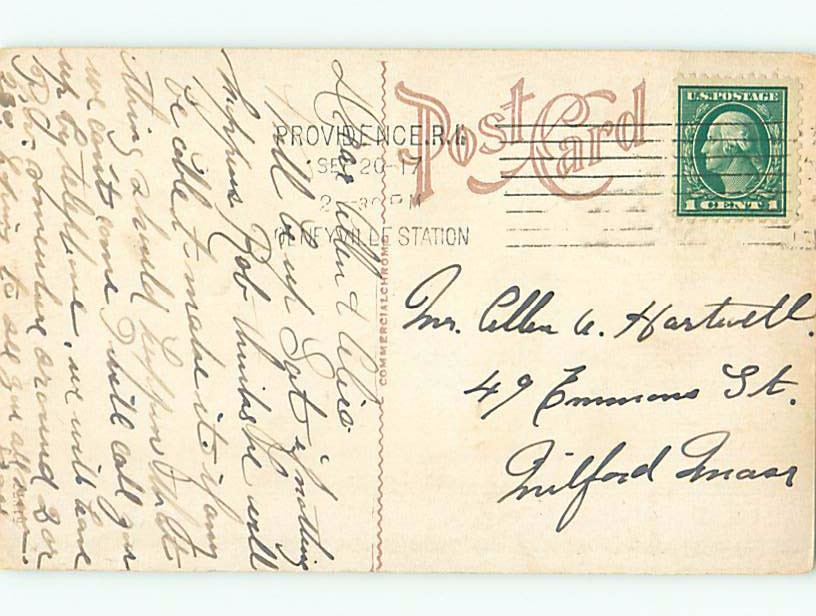 Post Card
U.S. POSTAGE
1 CENT 1
PROVIDENCE, R.I.
SEP 20-17
2-30 PM
OLNEYVILLE STATION
COMMERCIALCHROME
Mr. Allen A. Hartwell.
49 Emmons St.
Milford Mass
Dear Allen &
Will be up Sat if nothing
happens Rob thinks he will
be able to make it if any
thing should happen that
we can't come I will call you
up by telephone, we will leave
R.I. somewhere around 2 or
2:30 hoping to see you all